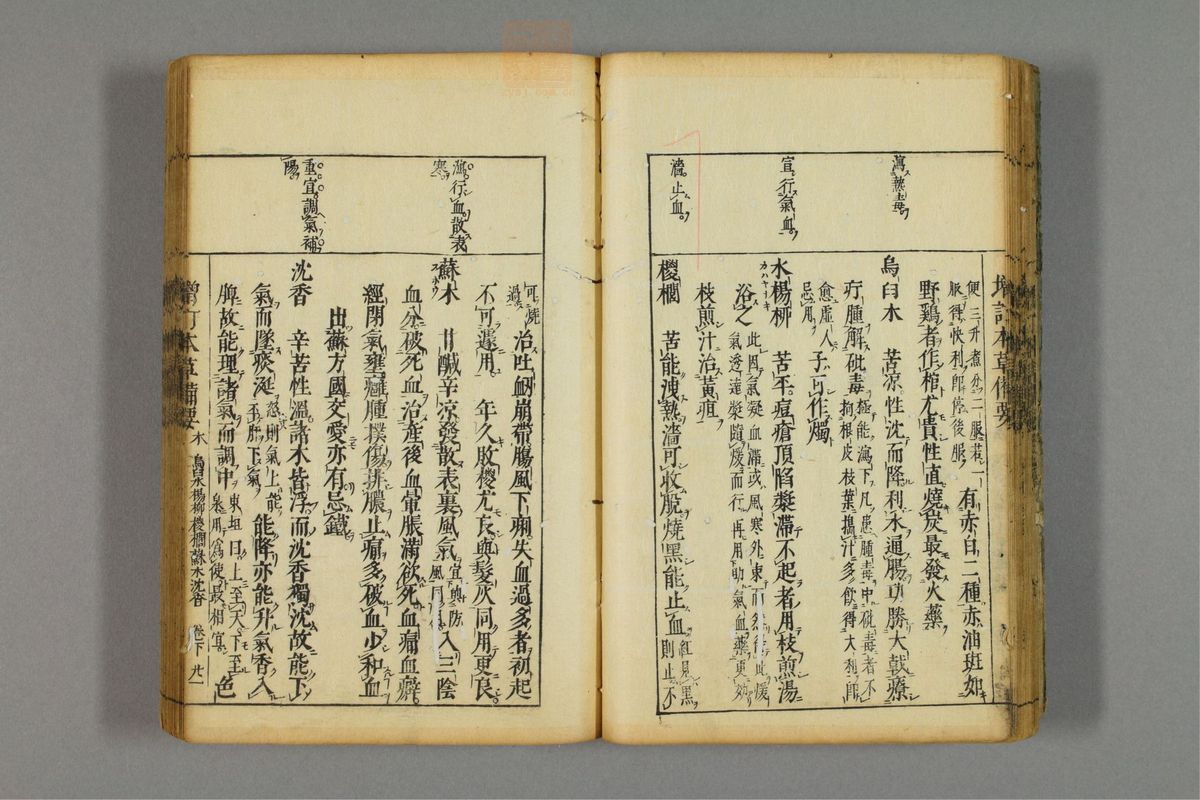 增訂本草備要
瀉熱毒
宣行氣血
濇止血
便三升煮分二服若一
服得快利即停後服
有赤白二種赤油斑如
野鷄者作棺尤貴性直燒炭最發火藥
烏臼木 苦凉性沈而降利水通腸功勝大戟療
疔腫解砒毒極能瀉下凡患腫毒中砒毒者不
拘根皮枝葉搗汁多飲得大利即
愈虛人
忌用
子可作燭
水楊柳 苦平痘瘡頂陷漿滯不起者用枝煎湯
カハヤナキ
浴之此因氣凝血滯或風寒外束而然得此煖
氣透達漿隨煖而行再用助氣血藥更妙
枝煎汁治黃疸
椶櫚 苦能洩熱濇可收脫燒黑能止血紅見黑
則止不
瀉行血散表
寒
重宜調氣補
陽
可燒
過
治吐衂崩帶腸風下痢失血過多者初起
不可遽用 年久敗椶尤良與髮灰同用更良
蘇木 甘鹹辛凉發散表裏風氣宜與防
風同用
入三陰
スホウ
血分破死血治産後血暈脹滿欲死血痛血癖
經閉氣壅癰腫撲傷排膿止痛多破血少和血
出蘇方國交愛亦有忌鐵
沈香 辛苦性溫諸木皆浮而沈香獨沈故能下
氣而墜痰涎怒則氣上能
平肝下氣
能降亦能升氣香入
脾故能理諸氣而調中東垣曰上至天下至
泉用爲使最相宜
色
增訂本草備要 木 烏臼水楊柳椶櫚蘇木沈香 卷下 廿一